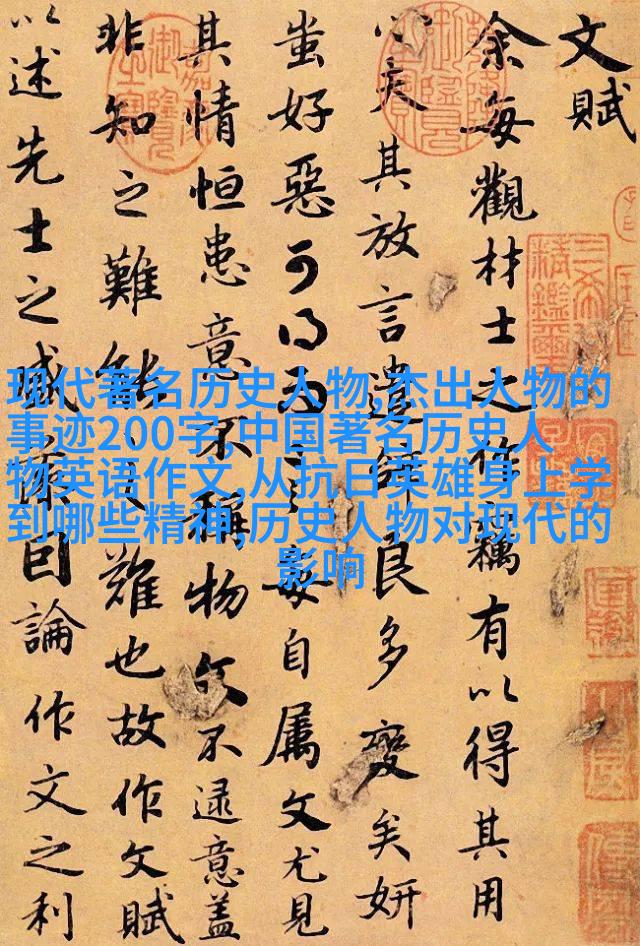 文賦
余每觀材士之作竊有以得其用
心夫其放言遣辭良多變矣妍
蚩好惡可得而言每自属文尤見
其情恒患意不稱物文不逮意盖
非知之難能之難也故作文賦
以述先士之盛藻因論作文之利
现代著名历史人物,杰出人物的
事迹200字,中国著名历史人
物英语作文,从抗日英雄身上学
到哪些精神,历史人物对现代的
影响